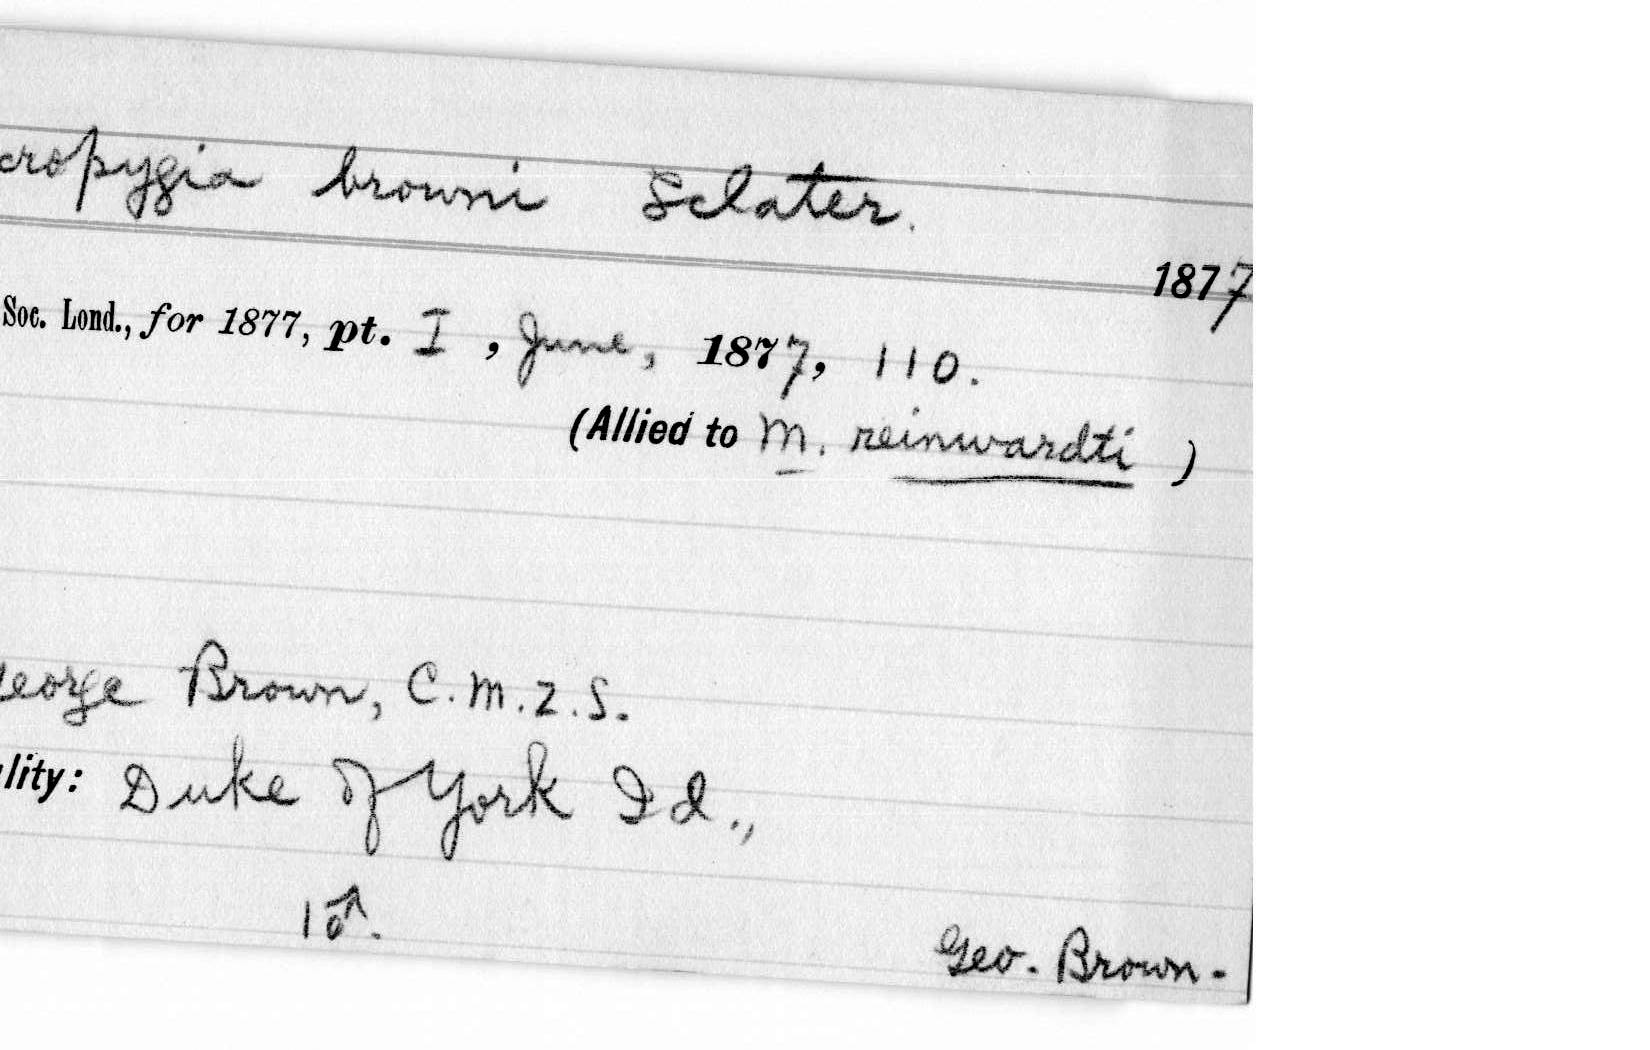 cropygia browni Sclater.
1877
Soc. Lond., for 1877, pt. I, June, 1877, 110.
(Allied to M. reinwardti )
eorge Brown, C.M.Z.S.
lity: Duke of York Id.,
1♂.
Geo. Brown.